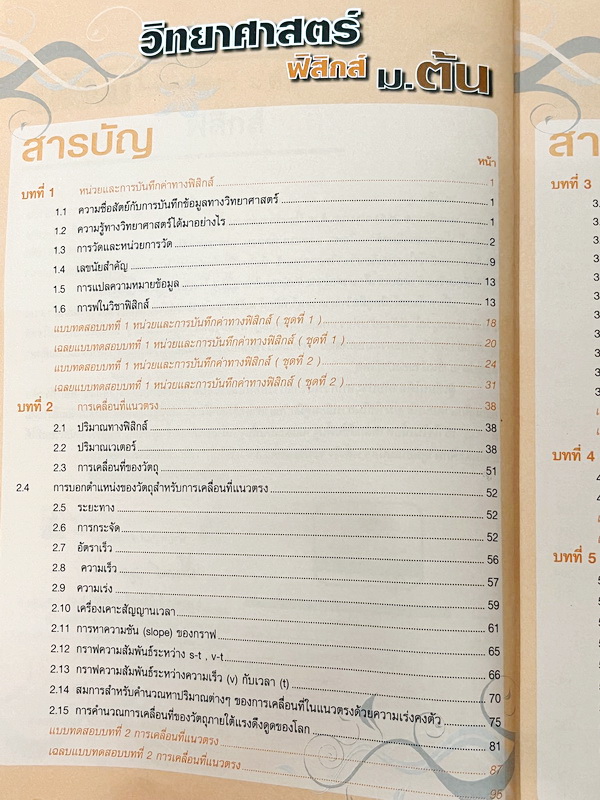 วิทยาศาสตร์
ฟิสิกส์ ม.ต้น
สารบัญ
หน้า
บทที่ 1 หน่วยและการบันทึกค่าทางฟิสิกส์ 1
1.1 ความซื่อสัตย์กับการบันทึกข้อมูลทางวิทยาศาสตร์ 1
1.2 ความรู้ทางวิทยาศาสตร์ได้มาอย่างไร 1
1.3 การวัดและหน่วยการวัด 2
1.4 เลขนัยสำคัญ 9
1.5 การแปลความหมายข้อมูล 13
1.6 กราฟในวิชาฟิสิกส์ 13
แบบทดสอบบทที่ 1 หน่วยและการบันทึกค่าทางฟิสิกส์ ( ชุดที่ 1 ) 18
เฉลยแบบทดสอบบทที่ 1 หน่วยและการบันทึกค่าทางฟิสิกส์ ( ชุดที่ 1 ) 20
แบบทดสอบบทที่ 1 หน่วยและการบันทึกค่าทางฟิสิกส์ ( ชุดที่ 2 ) 24
เฉลยแบบทดสอบบทที่ 1 หน่วยและการบันทึกค่าทางฟิสิกส์ ( ชุดที่ 2 ) 31
บทที่ 2 การเคลื่อนที่แนวตรง 38
2.1 ปริมาณทางฟิสิกส์ 38
2.2 ปริมาณเวเตอร์ 38
2.3 การเคลื่อนที่ของวัตถุ 51
2.4 การบอกตำแหน่งของวัตถุสำหรับการเคลื่อนที่แนวตรง 52
2.5 ระยะทาง 52
2.6 การกระจัด 52
2.7 อัตราเร็ว 56
2.8 ความเร็ว 57
2.9 ความเร่ง 59
2.10 เครื่องเคาะสัญญานเวลา 61
2.11 การหาความชัน (slope) ของกราฟ 65
2.12 กราฟความสัมพันธ์ระหว่าง s-t , v-t 66
2.13 กราฟความสัมพันธ์ระหว่างความเร็ว (v) กับเวลา (t) 70
2.14 สมการสำหรับคำนวณหาปริมาณต่างๆ ของการเคลื่อนที่ในแนวตรงด้วยความเร่งคงตัว 75
2.15 การคำนวณการเคลื่อนที่ของวัตถุภายใต้แรงดึงดูดของโลก 81
แบบทดสอบบทที่ 2 การเคลื่อนที่แนวตรง 87
เฉลบแบบทดสอบบทที่ 2 การเคลื่อนที่แนวตรง 95
สา
บทที่ 3
บทที่ 4
บทที่ 5